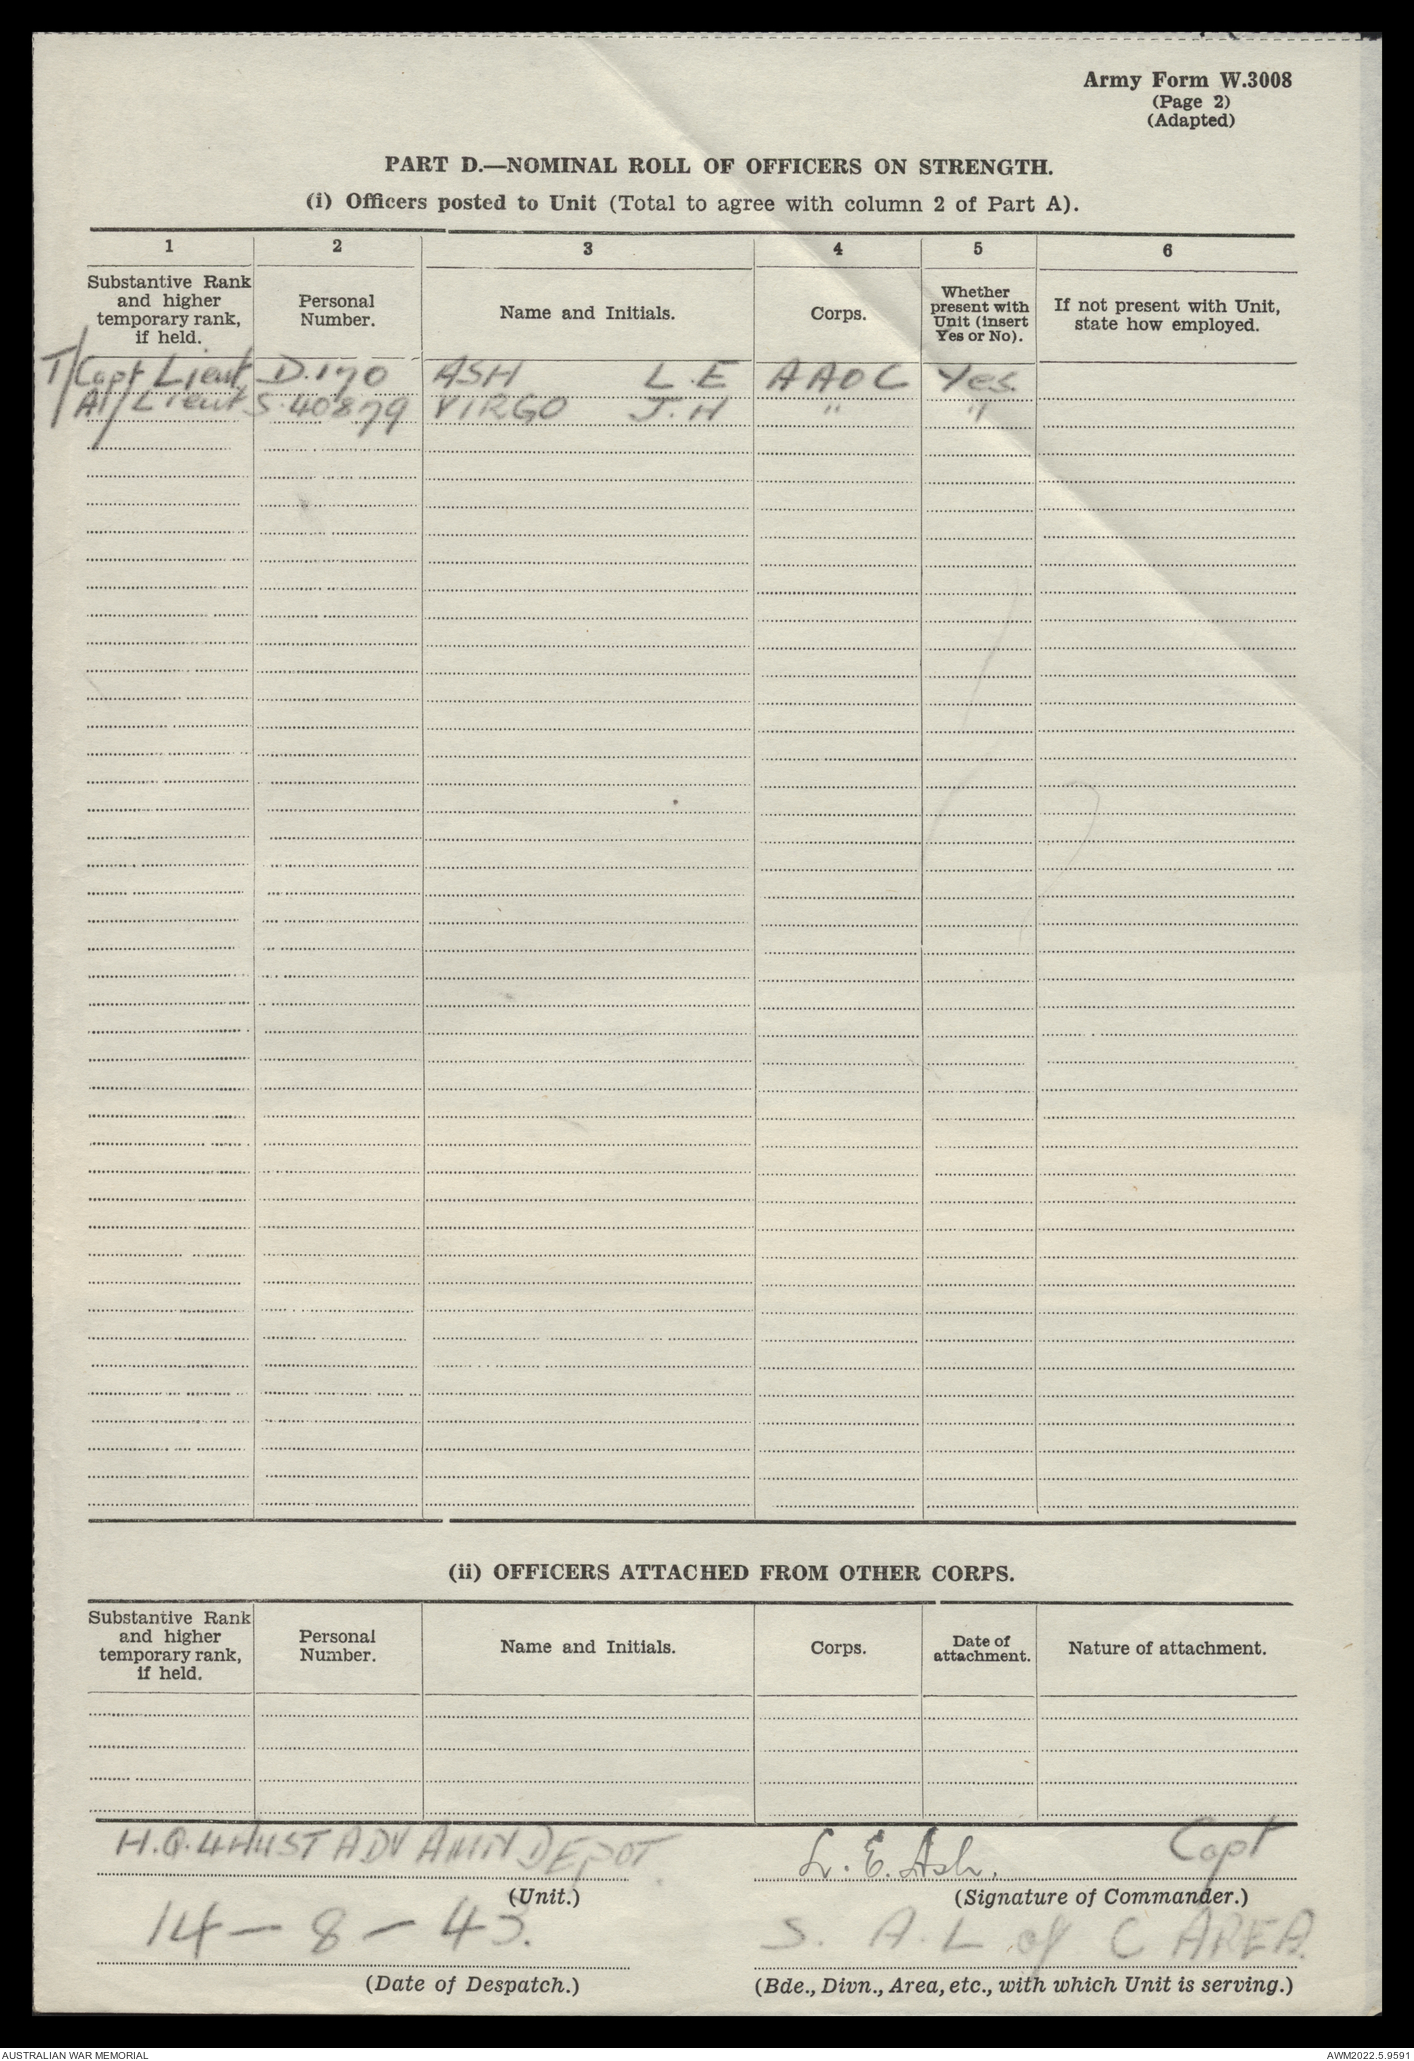 Army Form W.3008
(Page 2)
(Adapted)
PART D.—NOMINAL ROLL OF OFFICERS ON STRENGTH.
(i) Officers posted to Unit (Total to agree with column 2 of Part A).
1 2 3 4 5 6
Substantive Rank and higher temporary rank, if held.
Personal Number.
Name and Initials.
Corps.
Whether present with Unit (insert Yes or No).
If not present with Unit, state how employed.
T/Capt Lieut D.170 ASH L.E AAOC Yes
A/Lieut S.40879 VIRGO J.H " "
(ii) OFFICERS ATTACHED FROM OTHER CORPS.
Substantive Rank and higher temporary rank, if held.
Personal Number.
Name and Initials.
Corps.
Date of attachment.
Nature of attachment.
H.Q. 4 AUST ADV AMN DEPOT. L. E. Ash. Capt
(Unit.) (Signature of Commander.)
14 - 8 - 43. S. A. L of C AREA.
(Date of Despatch.) (Bde., Divn., Area, etc., with which Unit is serving.)
AUSTRALIAN WAR MEMORIAL AWM2022.5.9591